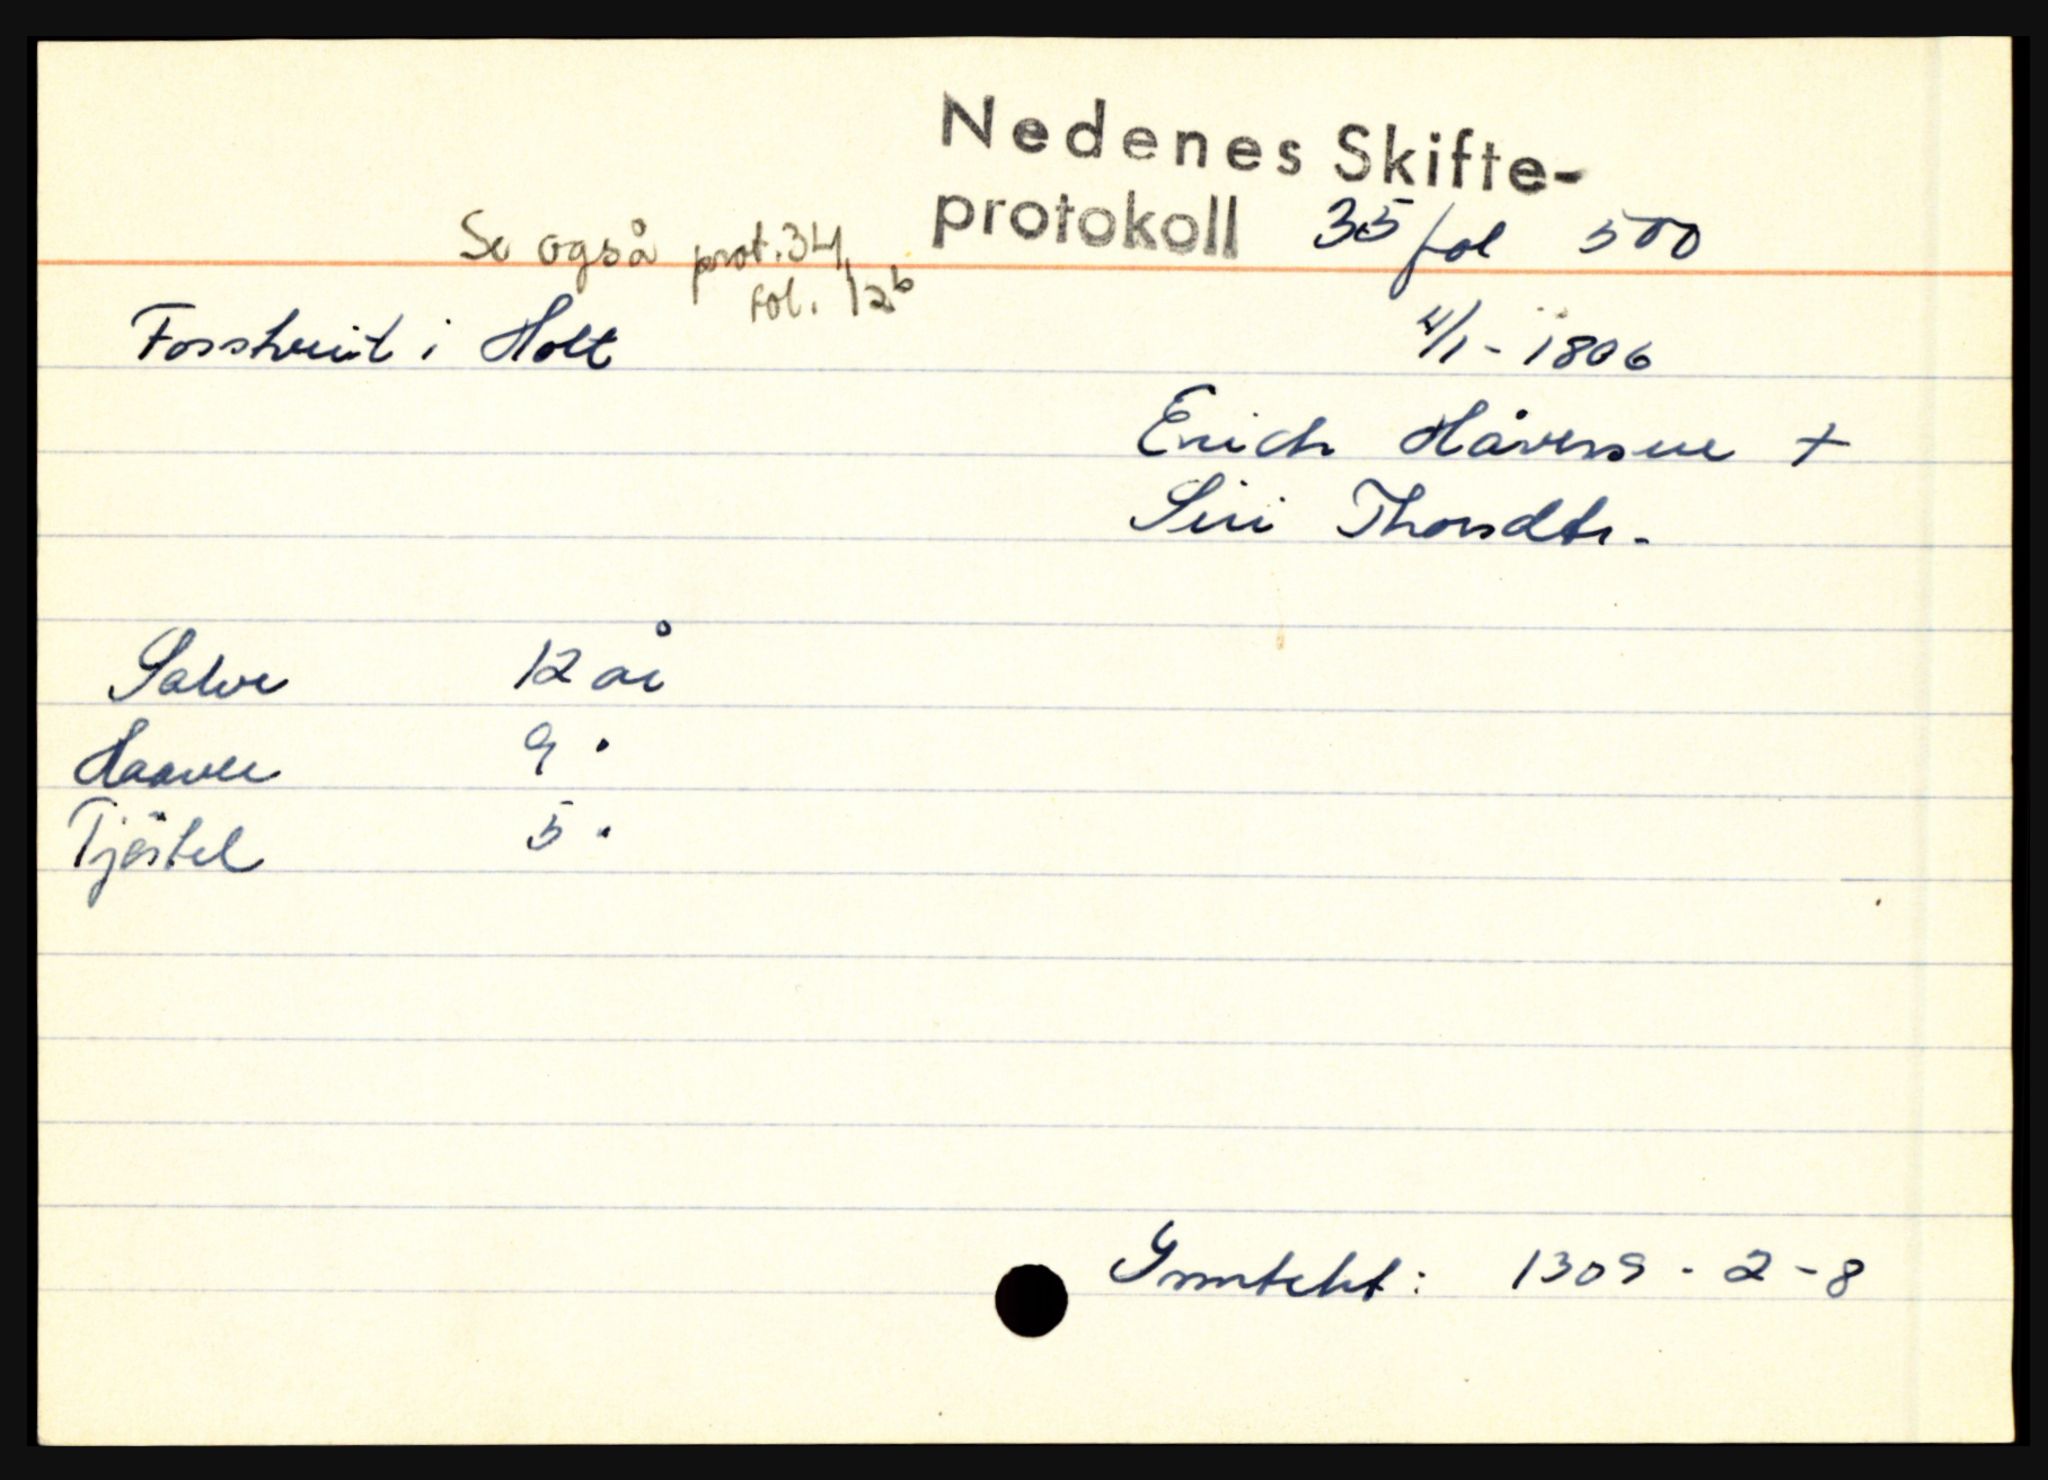 Nedenes Skifte-
protokoll 35 fol 500
Se også prot. 34,
fol. 12b
Fosstveit i Holt 4/1 - 1806
Erich Håversen +
Siri Thorsdtr.
Salve 12 år
Haaver 9 "
Tjöstel 5 "
Inntekt: 1309 - 2 - 8